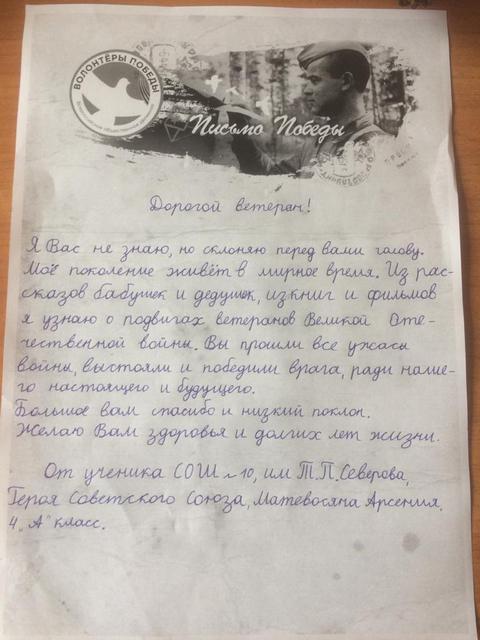 ВОЛОНТЁРЫ ПОБЕДЫ
Письмо Победы
Дорогой ветеран!
Я Вас не знаю, но склоняю перед вами голову.
Моё поколение живёт в мирное время. Из рас-
сказов бабушек и дедушек, из книг и фильмов
я узнаю о подвигах ветеранов Великой Оте-
чественной войны. Вы прошли все ужасы
войны, выстояли и победили врага, ради наше-
го настоящего и будущего.
Большое вам спасибо и низкий поклон.
Желаю Вам здоровья и долгих лет жизни.
От ученика СОШ №10, им Т.П.Северова,
Героя Советского Союза, Матевосяна Арсения.
4 „А" класс.